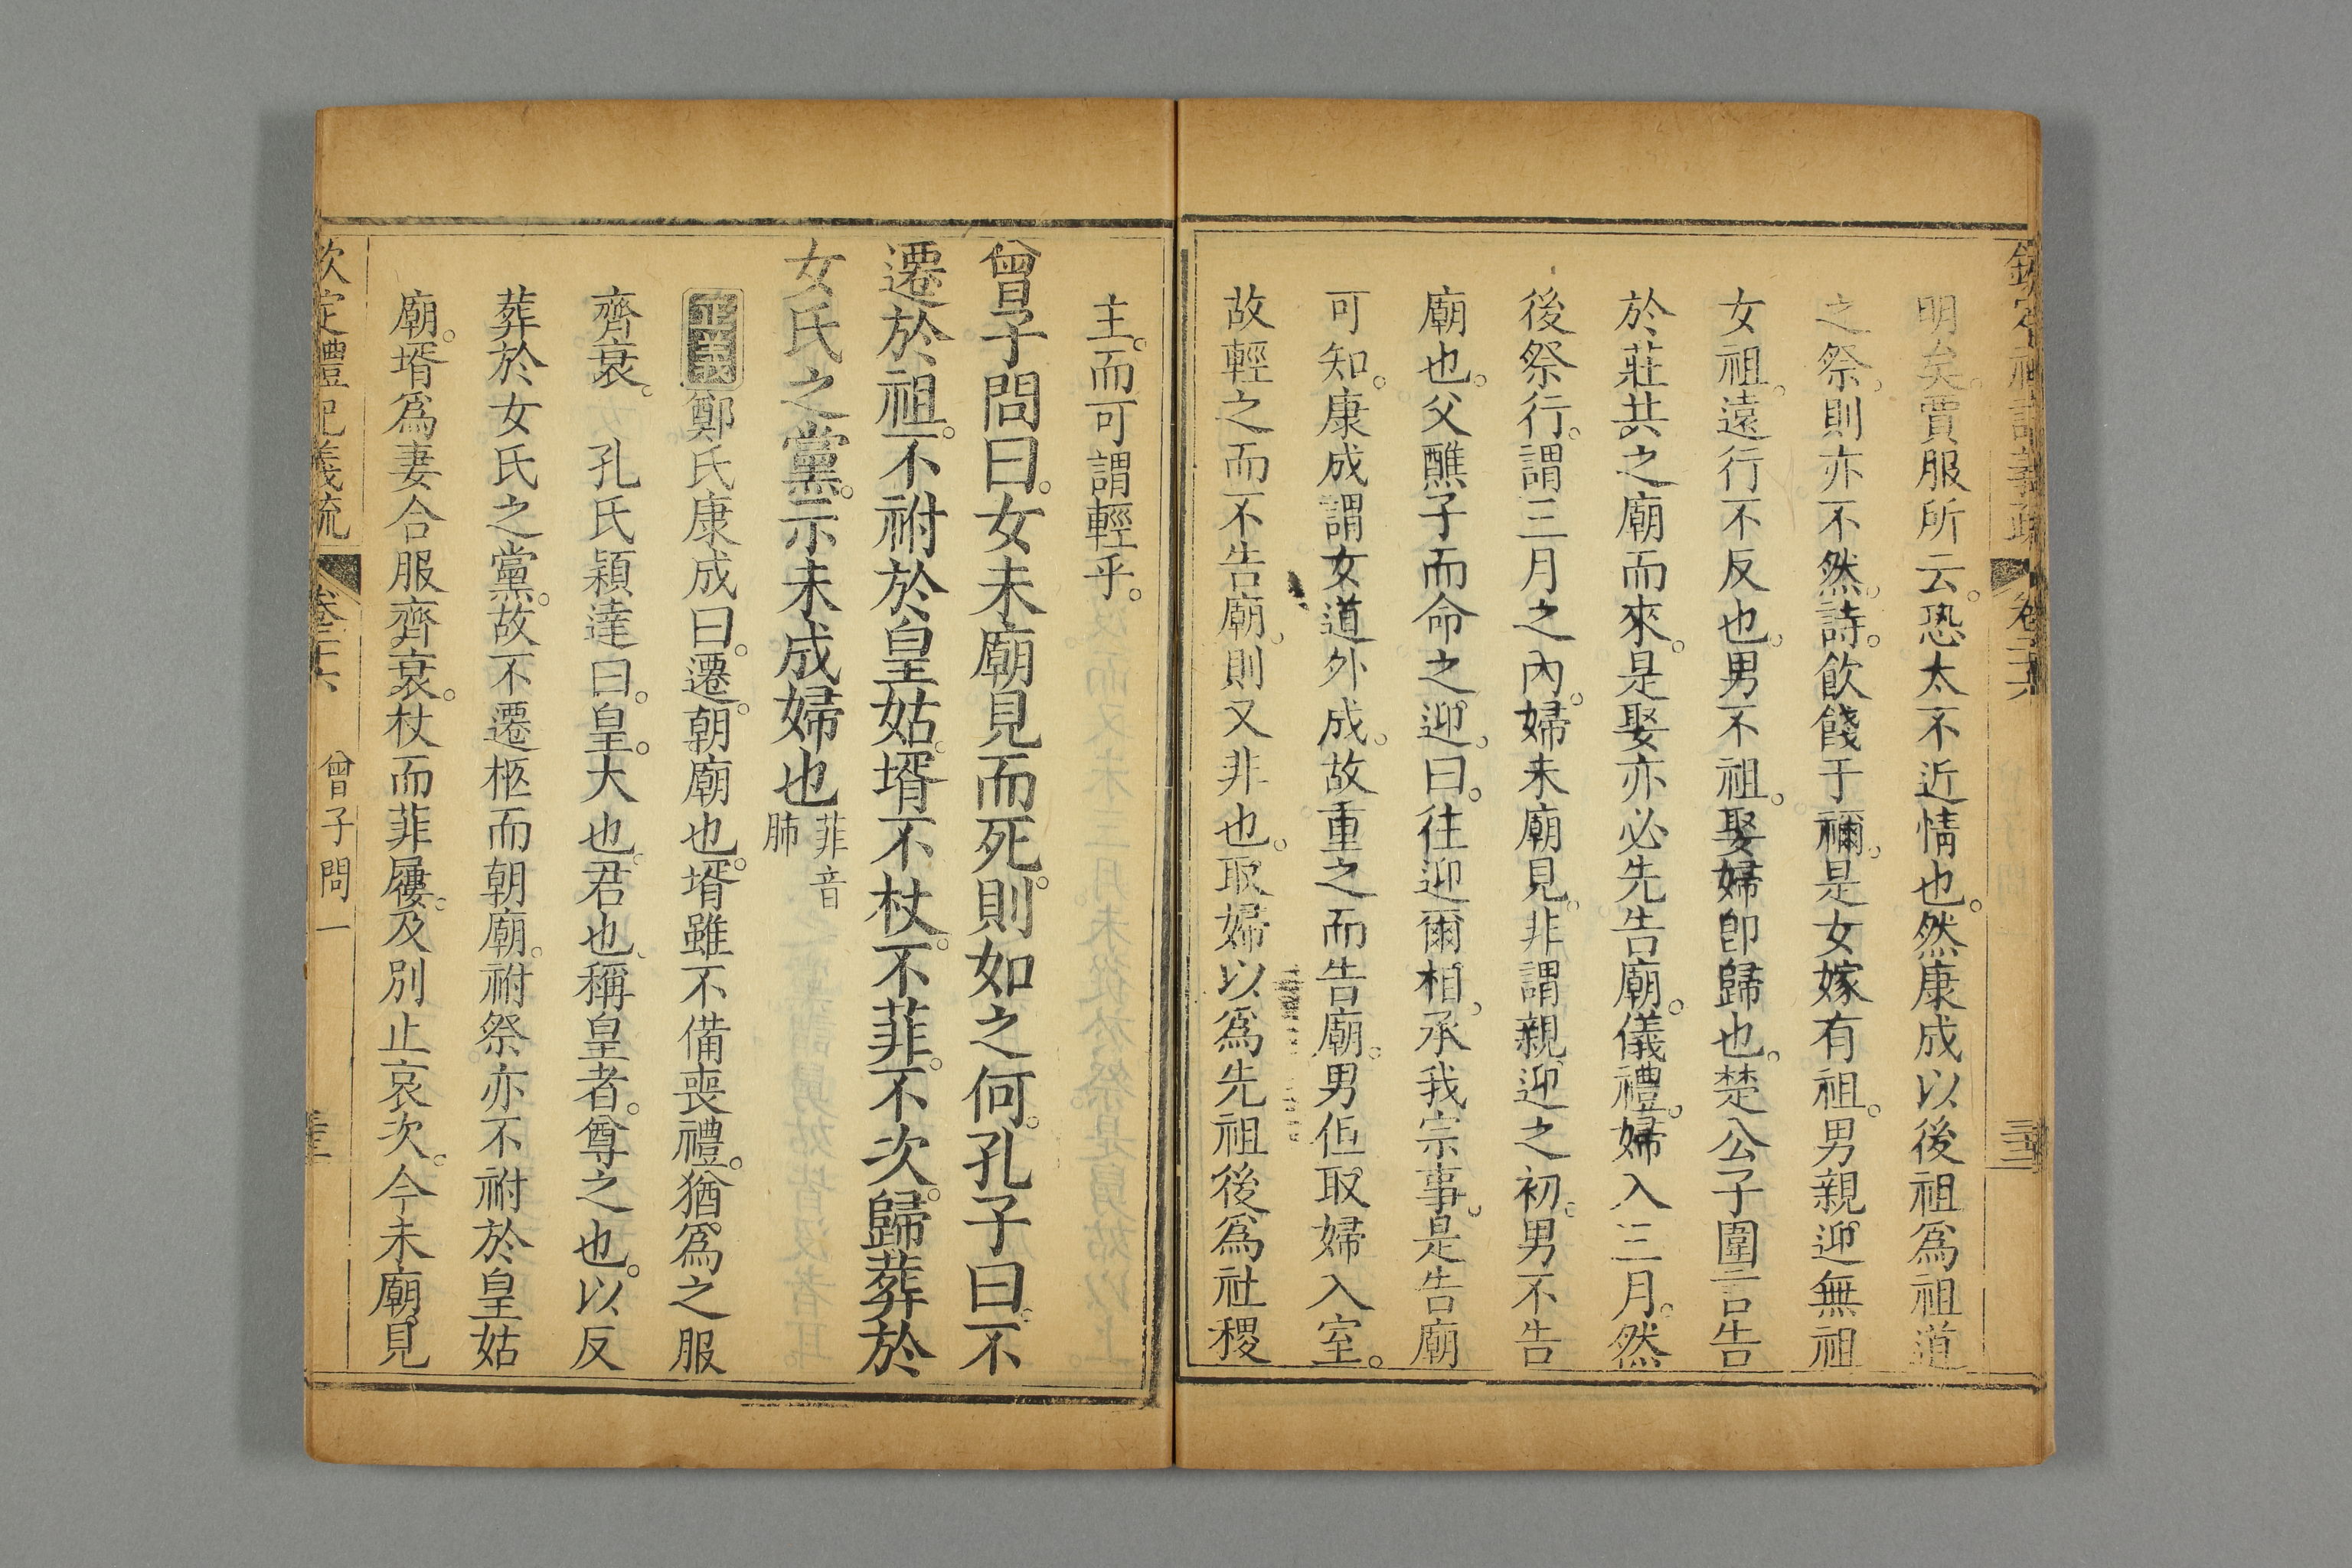 明矣。賈服所云。恐太不近情也。然康成以後祖爲祖道
之祭。則亦不然。詩。飲餞于禰。是女嫁有祖。男親迎無祖
女祖。遠行不反也。男不祖。娶婦卽歸也。楚公子圍言告
於莊共之廟而來。是娶亦必先告廟。儀禮。婦入三月。然
後祭行。謂三月之內。婦未廟見。非謂親迎之初。男不告
廟也。父醮子而命之迎。曰。往迎爾相。承我宗事。是告廟
可知。康成謂女道外成。故重之而告廟。男但取婦入室。
故輕之而不告廟。則又非也。取婦以爲先祖後爲社稷
主。而可謂輕乎。
曾子問曰。女未廟見而死。則如之何。孔子曰。不
遷於祖。不祔於皇姑。壻不杖。不菲。不次。歸葬於
女氏之黨。示未成婦也 菲音肺
正義 鄭氏康成曰。遷。朝廟也。壻雖不備喪禮。猶爲之服
齊衰。 孔氏穎達曰。皇。大也。君也。稱皇者。尊之也。以反
葬於女氏之黨。故不遷柩而朝廟。祔祭亦不祔於皇姑
廟。壻爲妻合服齊衰。杖而菲屨。及別止哀次。今未廟見
欽定禮記義疏 卷二十六 曾子問一